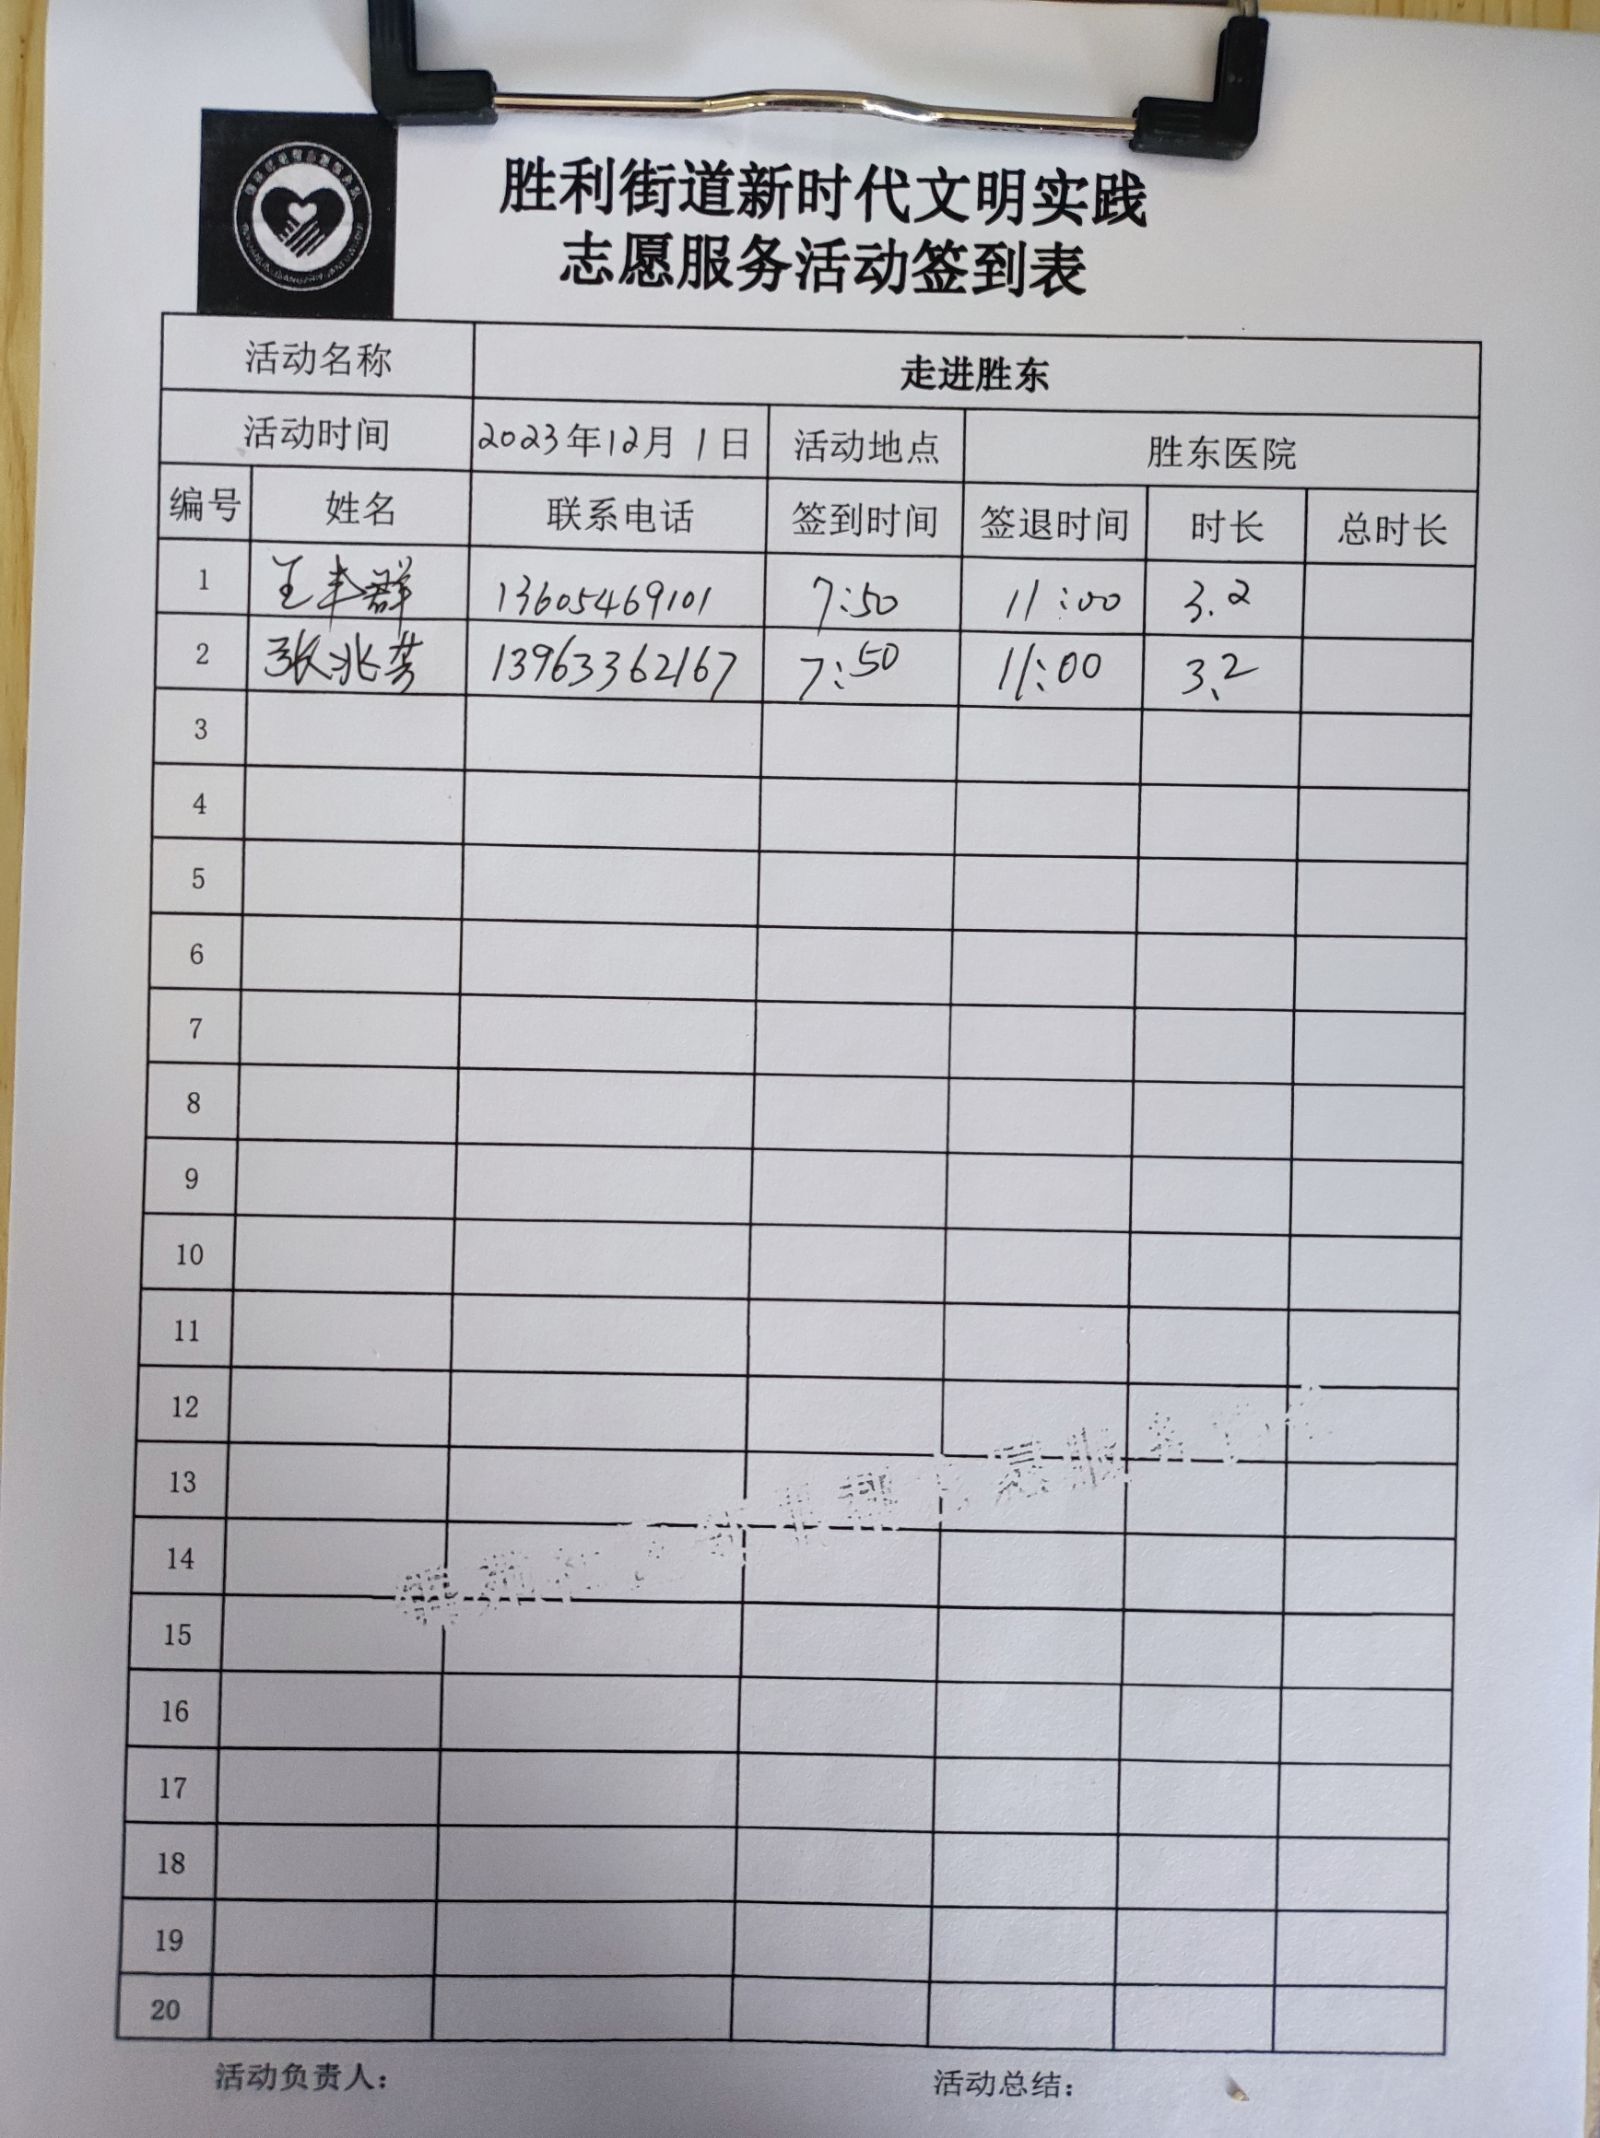 胜利街道新时代文明实践
志愿服务活动签到表
活动名称 走进胜东
活动时间 2023年12月1日 活动地点 胜东医院
编号 姓名 联系电话 签到时间 签退时间 时长 总时长
1 王丰群 13605469101 7:50 11:00 3.2
2 张兆芳 13963362167 7:50 11:00 3.2
3
4
5
6
7
8
9
10
11
12
13
14
15
16
17
18
19
20
活动负责人： 活动总结：